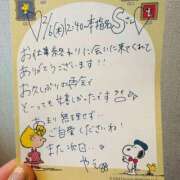 12/6(木)2:40〜本指名Sさん
お仕事終わりに会いに来てくれて
ありがとうございます!!
お久しぶりの再会で
とっても嬉しかったです
あまり無理せず
ご自愛くださいね!
また次回..。